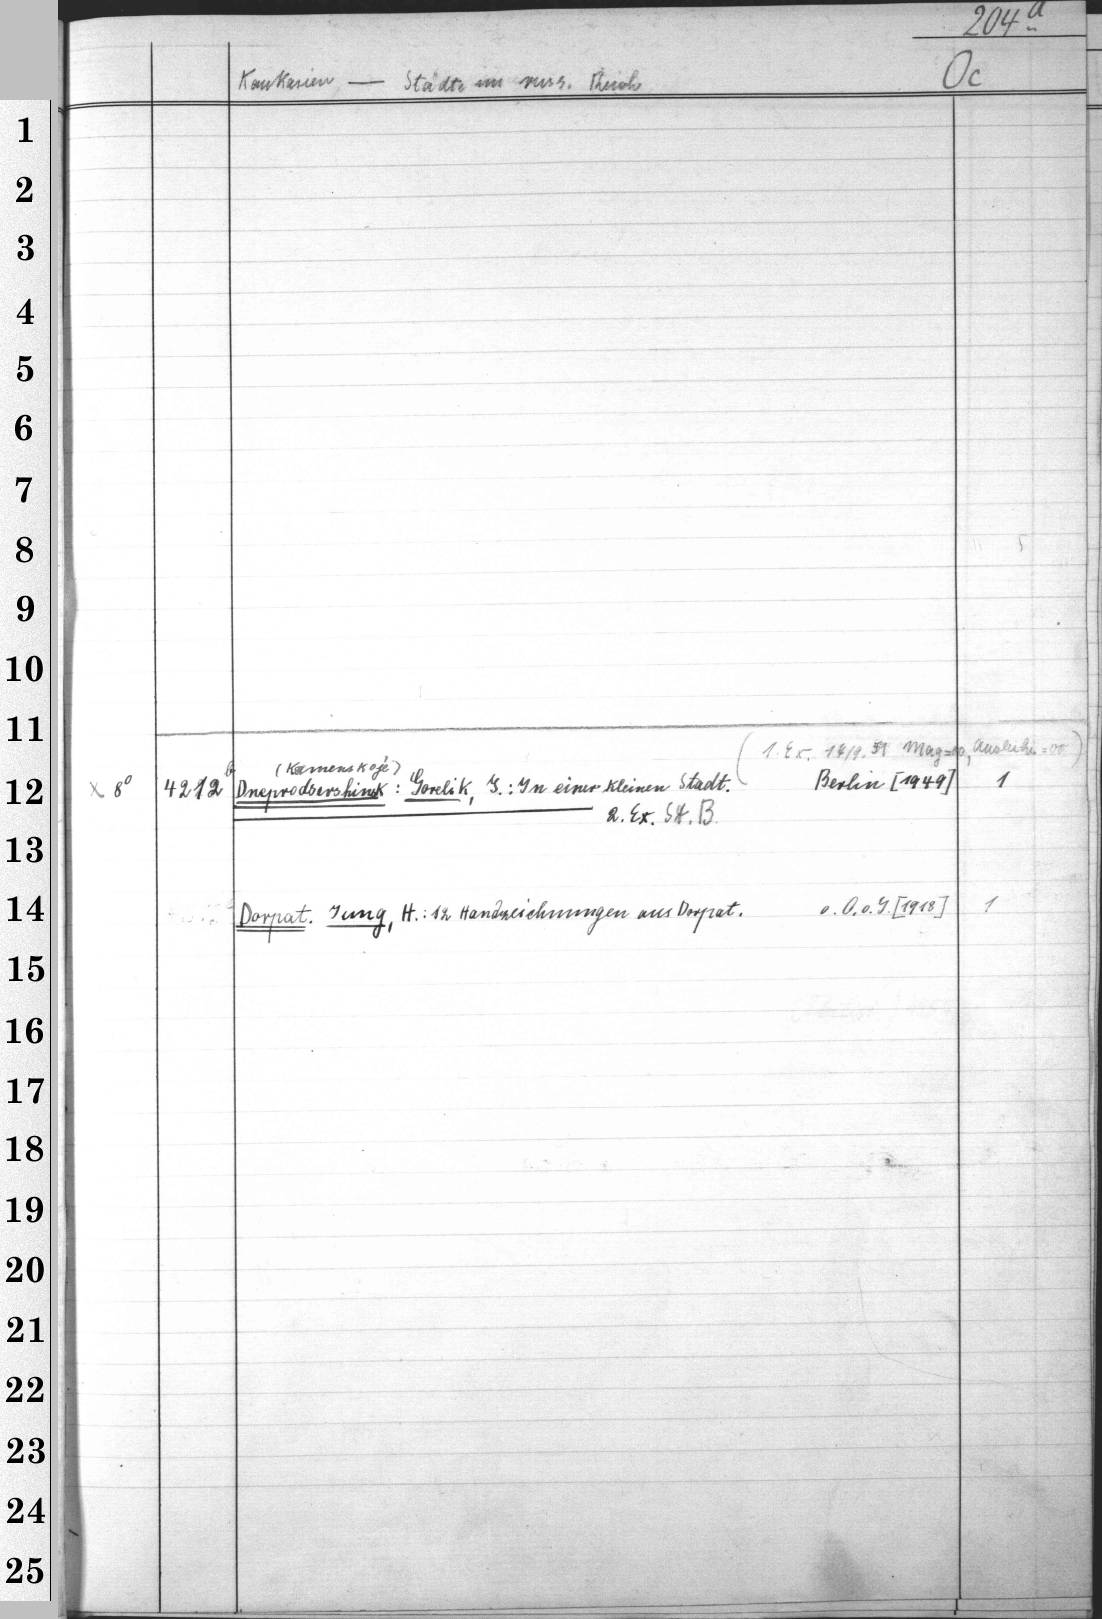 204a
Kaukasien — Städte im russ. Reich
Oc
1
2
3
4
5
6
7
8
9
10
11
(1. Ex. Mag=, Ausleihe=)
(Kamenskoje)
12 x 8° 4212b Dneprodsershinsk : Gorelik, G.: In einer kleinen Stadt. Berlin [1949] 1
2. Ex. St. B.
13
14 Dorpat. Jung, H.: 12 Handzeichnungen aus Dorpat. o. O. o. J. [1918] 1
15
16
17
18
19
20
21
22
23
24
25